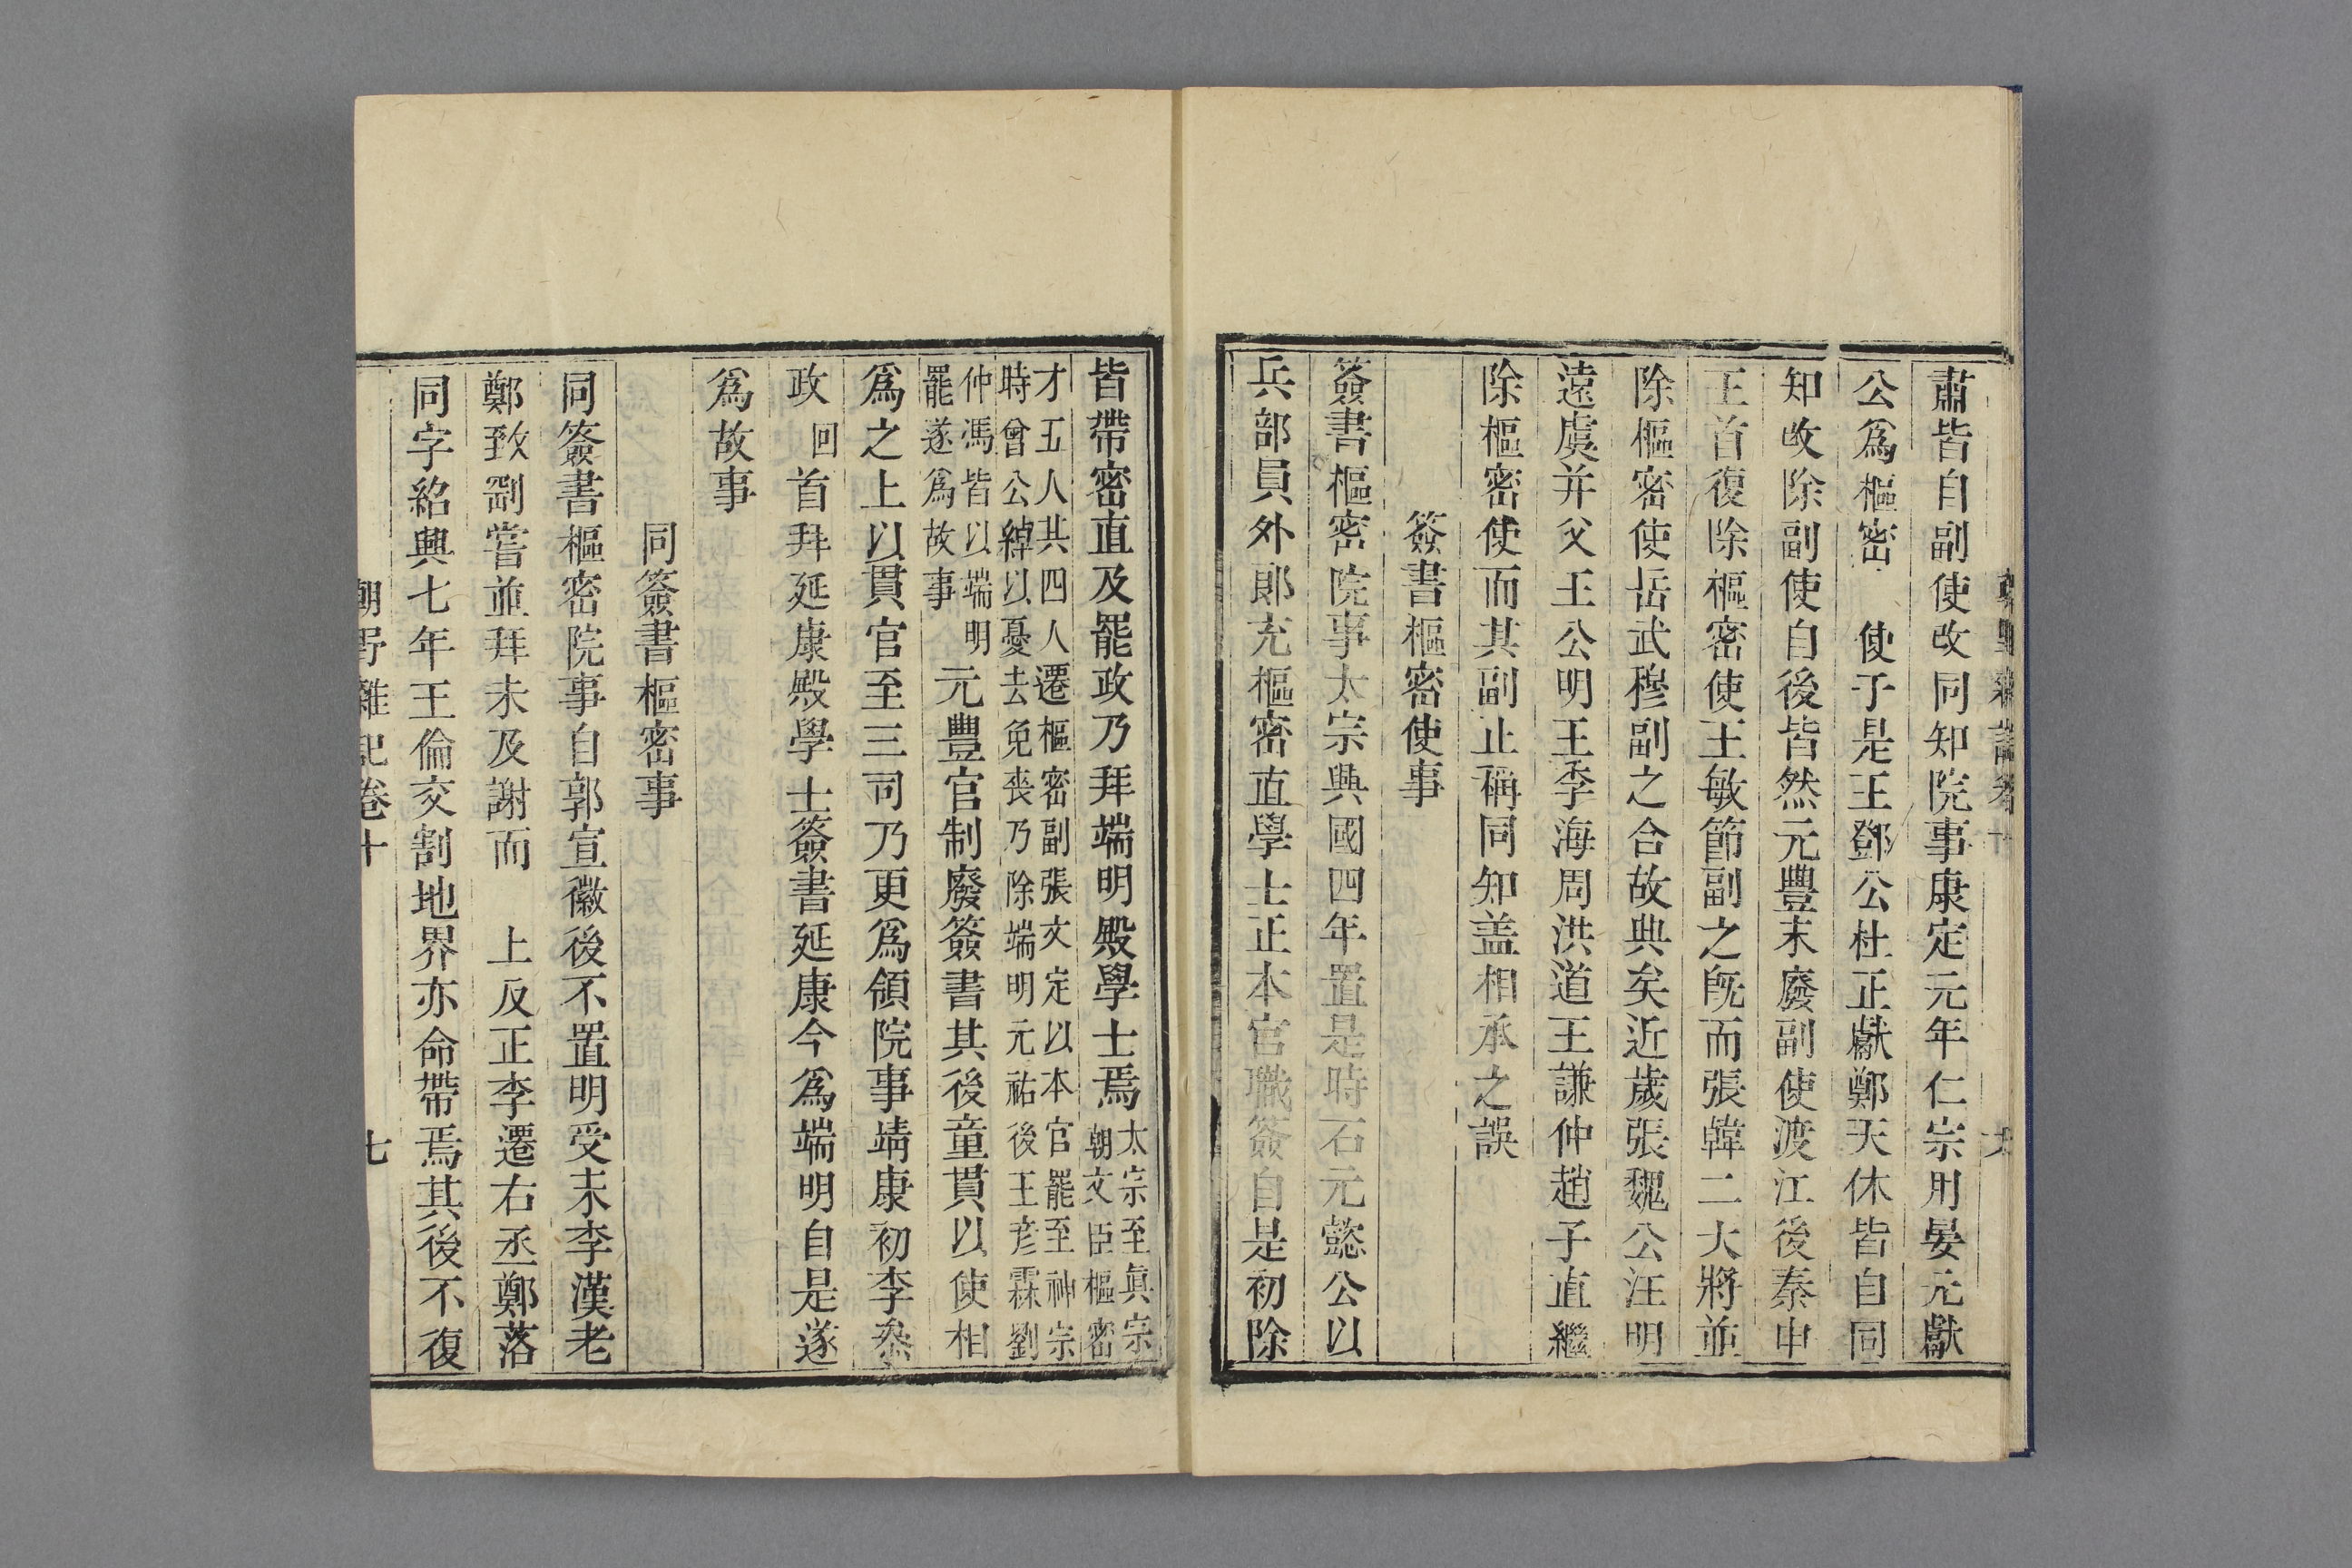 肅皆自副使改同知院事康定元年仁宗用晏元獻
公爲樞密 使于是王鄧公杜正獻鄭天休皆自同
知改除副使自後皆然元豐末廢副使渡江後秦申
王首復除樞密使王敏節副之旣而張韓二大將並
除樞密使岳武穆副之合故典矣近歲張魏公汪明
遠虞并父王公明王季海周洪道王謙仲趙子直繼
除樞密使而其副止稱同知盖相承之誤
簽書樞密使事
簽書樞密院事太宗興國四年置是時石元懿公以
兵部員外郞充樞密直學士正本官職簽自是初除
皆帶密直及罷政乃拜端明殿學士焉太宗至眞宗朝文臣樞密
才五人共四人遷樞密副張文定以本官罷至神宗
時曾公綽以憂去免喪乃除端明元祐後王彥霖劉
仲馮皆以端明罷遂爲故事元豐官制廢簽書其後童貫以使相
爲之上以貫官至三司乃更爲領院事靖康初李叅
政回首拜延康殿學士簽書延康今爲端明自是遂
爲故事
同簽書樞密事
同簽書樞密院事自郭宣徽後不置明受末李漢老
鄭致剛嘗並拜未及謝而 上反正李遷右丞鄭落
同字紹興七年王倫交割地界亦命帶焉其後不復
朝野雜記卷十 七